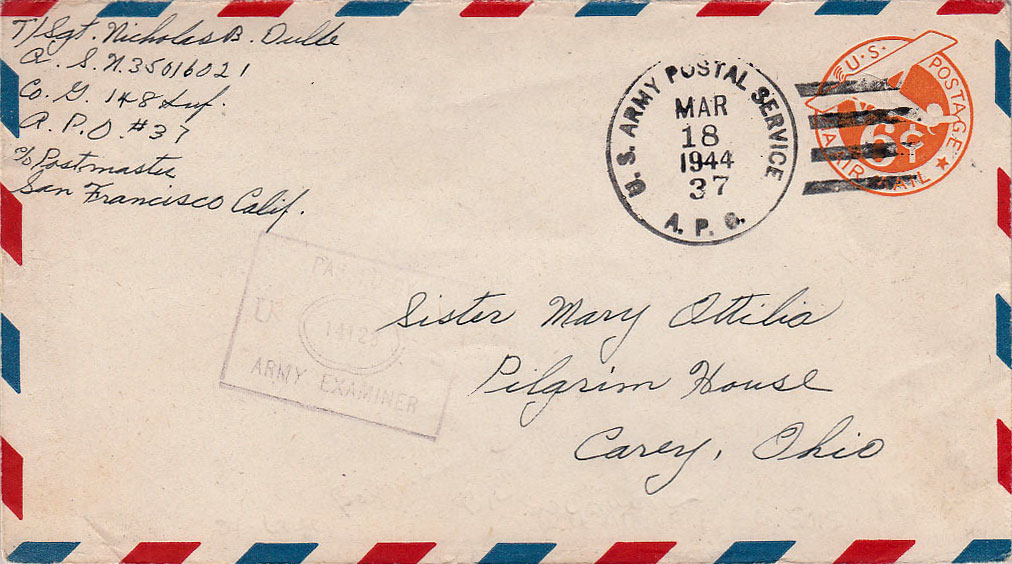 T/Sgt. Nicholas B. Dulle
A. S. N. 35016021
Co. G. 148 Inf.
A. P. O. #37
c/o Postmaster
San Francisco Calif.
U. S. ARMY POSTAL SERVICE
MAR
18
1944
37
A. P. O.
U.S. POSTAGE
6¢
AIR MAIL
14123
ARMY EXAMINER
Sister Mary Ottilia
Pilgrim House
Carey, Ohio